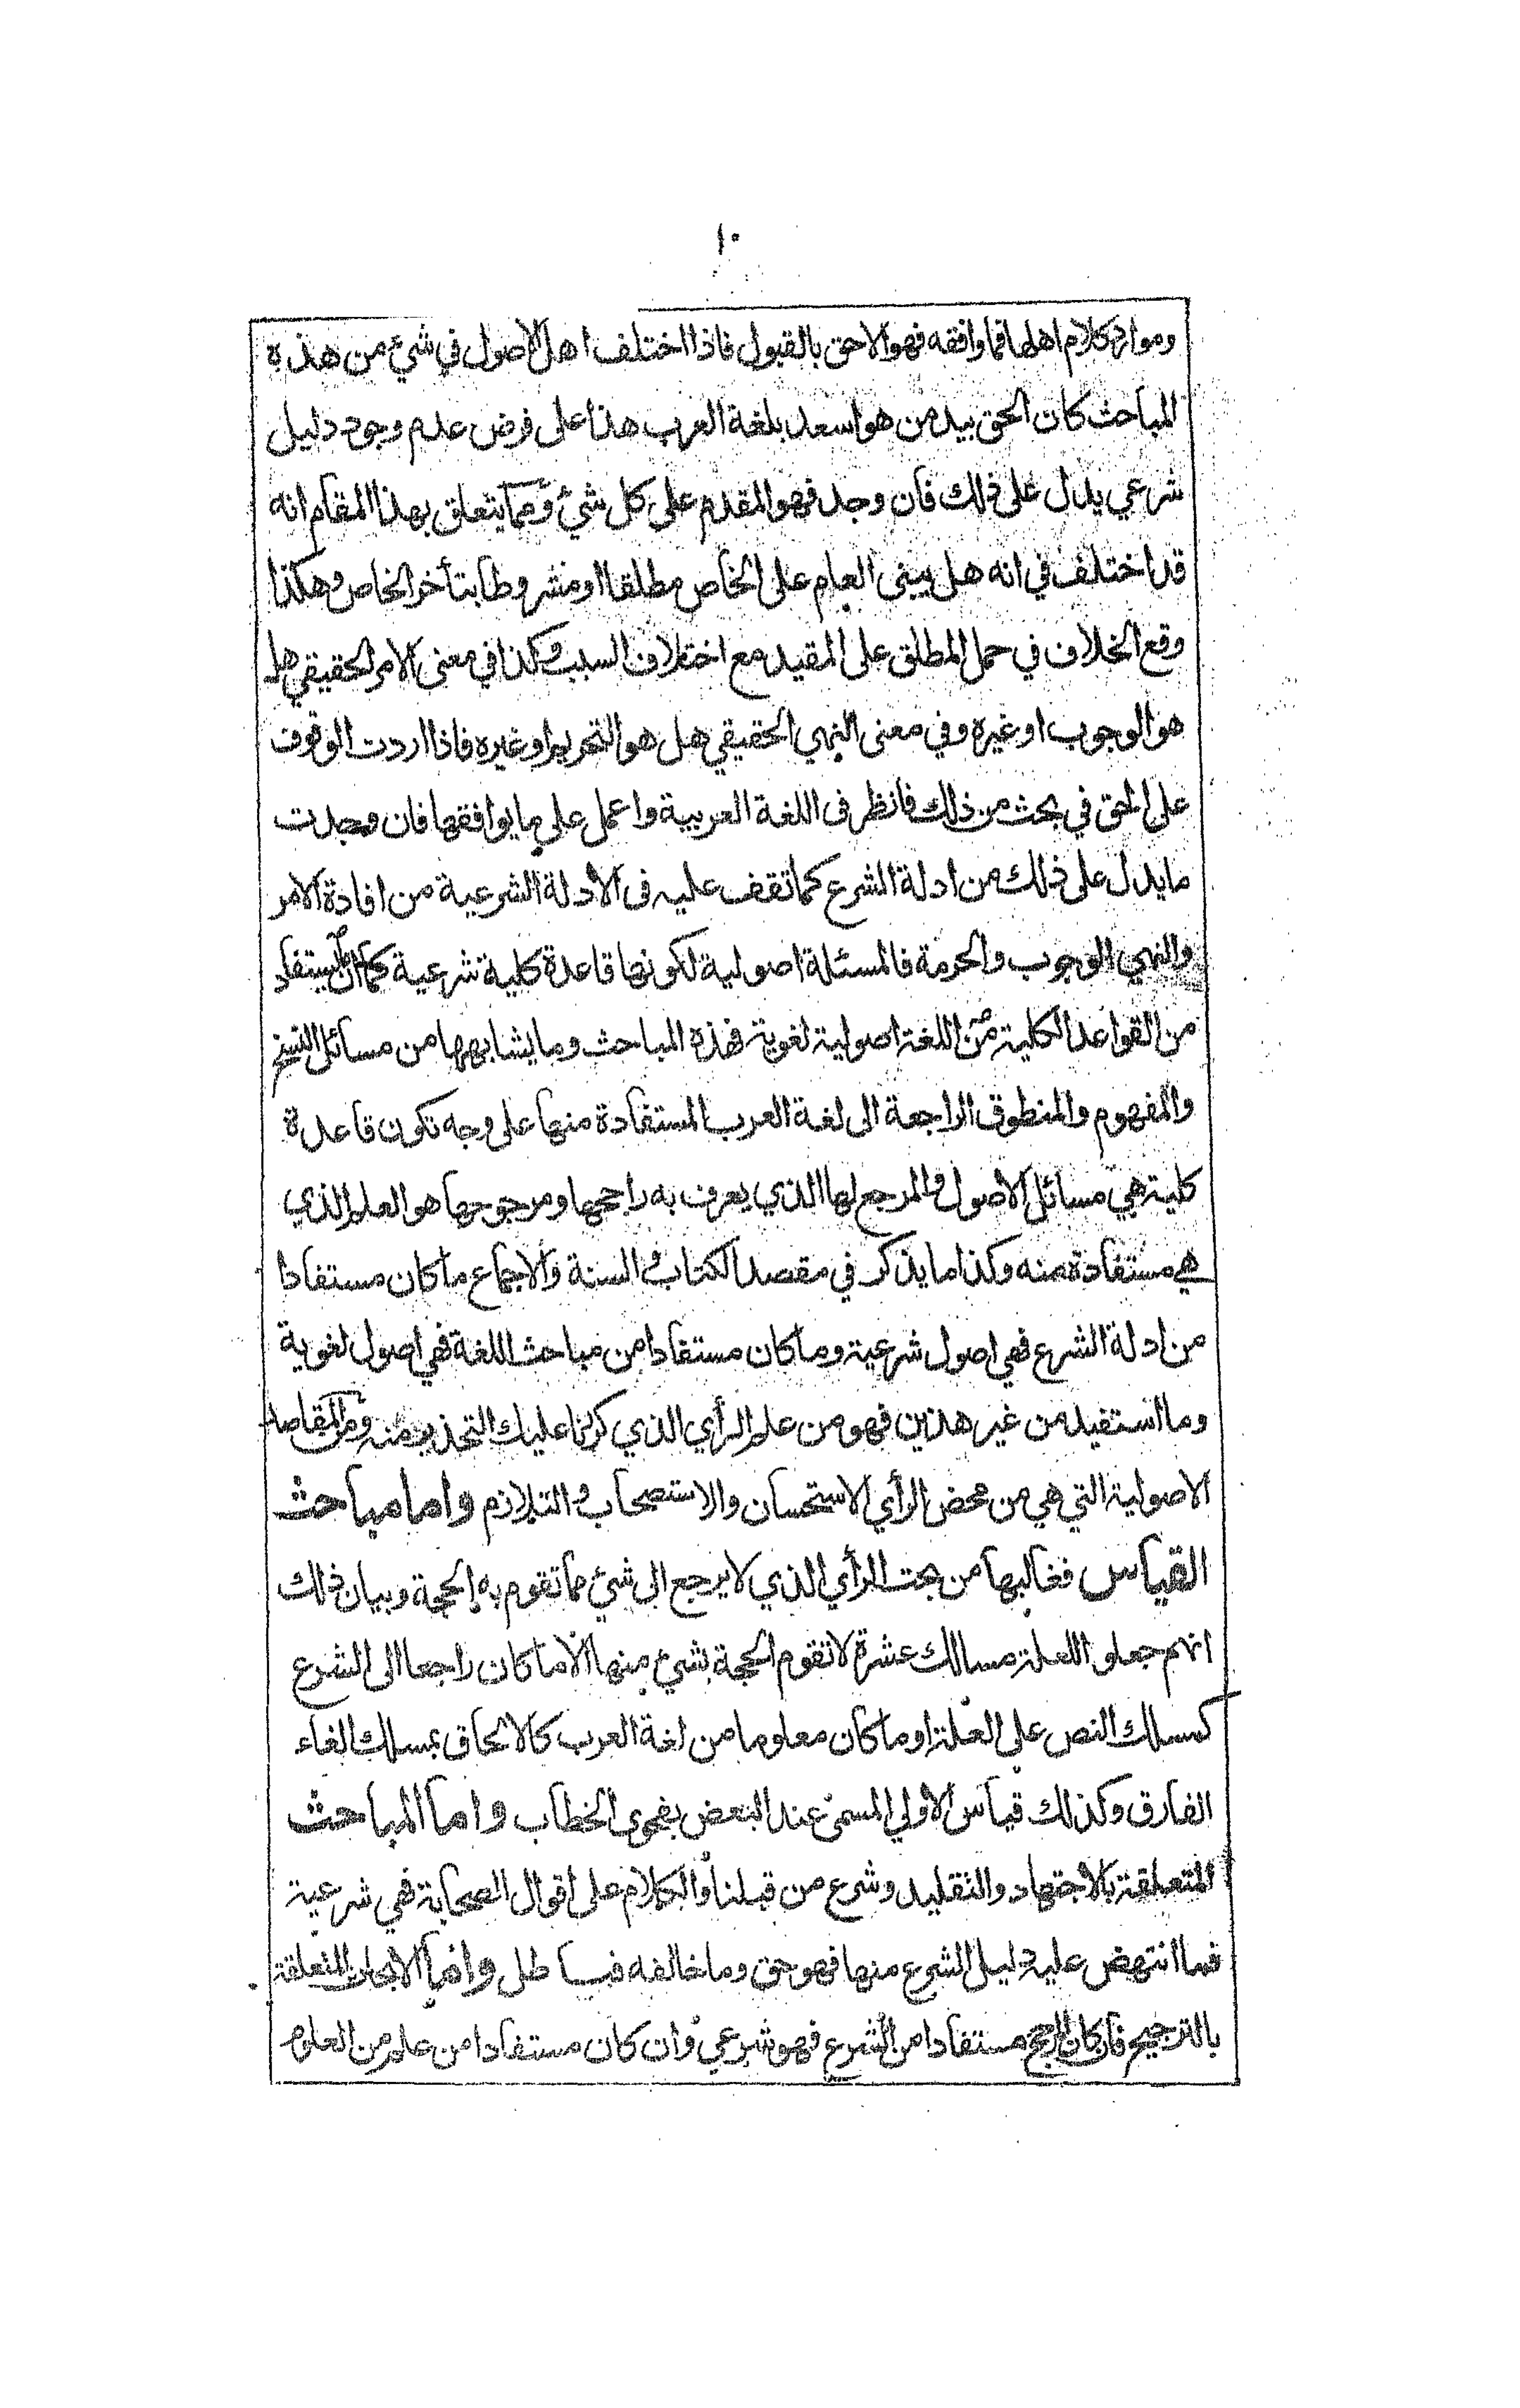 ١٠
وموارد كلام اهلها فما وافقه فهو الاحق بالقبول فاذا اختلف اهل الاصول في شئ من هذه
المباحث كان الحق بيد من هو اسعد بلغة العرب هذا على فرض عدم وجود دليل
شرعي يدل على ذلك فان وجد فهو المقدم على كل شئ ومما يتعلق بهذا المقام انه
قد اختلف في انه هل يبنى العام على الخاص مطلقا او مشروطا بتأخر الخاص وهكذا
وقع الخلاف في حمل المطلق على المقيد مع اختلاف السبب وكذا في معنى الامر الحقيقي هل
هو الوجوب او غيره وفي معنى النهي الحقيقي هل هو التحريم او غيره فاذا اردت الوقوف
على الحق في بحث من ذلك فانظر فى اللغة العربية واعمل على ما يوافقها فان وجدت
ما يدل على ذلك من ادلة الشرع كما تقف عليه فى الادلة الشرعية من افادة الامر
والنهي الوجوب والحرمة فالمسئلة اصولية لكونها قاعدة كلية شرعية كما ان ما يستفاد
من القواعد الكلية من اللغة اصولية لغوية فهذه المباحث وما يشابهها من مسائل النسخ
والمفهوم والمنطوق الراجعة الى لغة العرب المستفادة منها على وجه تكون قاعدة
كلية هي مسائل الاصول والمرجع لها الذي يعرف به راجحها ومرجوحها هو العلم الذي
هي مستفادة منه وكذا ما يذكر في مقصد الكتاب والسنة والاجماع ما كان مستفادا
من ادلة الشرع فهي اصول شرعية وما كان مستفادا من مباحث اللغة فهي اصول لغوية
وما استفيد من غير هذين فهو من علم الرأي الذي كررنا عليك التحذير منه ومن المقاصد
الاصولية التي هي من محض الرأي الاستحسان والاستصحاب والتلازم واما مباحث
القياس فغالبها من بحت الرأي الذي لا يرجع الى شئ مما تقوم به الحجة وبيان ذلك
انهم جعلوا للعلة مسالك عشرة لا تقوم الحجة بشئ منها الا ما كان راجعا الى الشرع
كمسلك النص على العلة او ما كان معلوما من لغة العرب كالالحاق بمسلك الغاء
الفارق وكذلك قياس الاولي المسمى عند البعض بفحوى الخطاب واما المباحث
المتعلقة بالاجتهاد والتقليد وشرع من قبلنا والكلام على اقوال الصحابة فهي شرعية
فما انتهض عليه دليل الشرع منها فهو حق وما خالفه فباطل واما الابحاث المتعلقة
بالترجيح فان كان المرجح مستفادا من الشرع فهو شرعي وان كان مستفادا من علم من العلوم